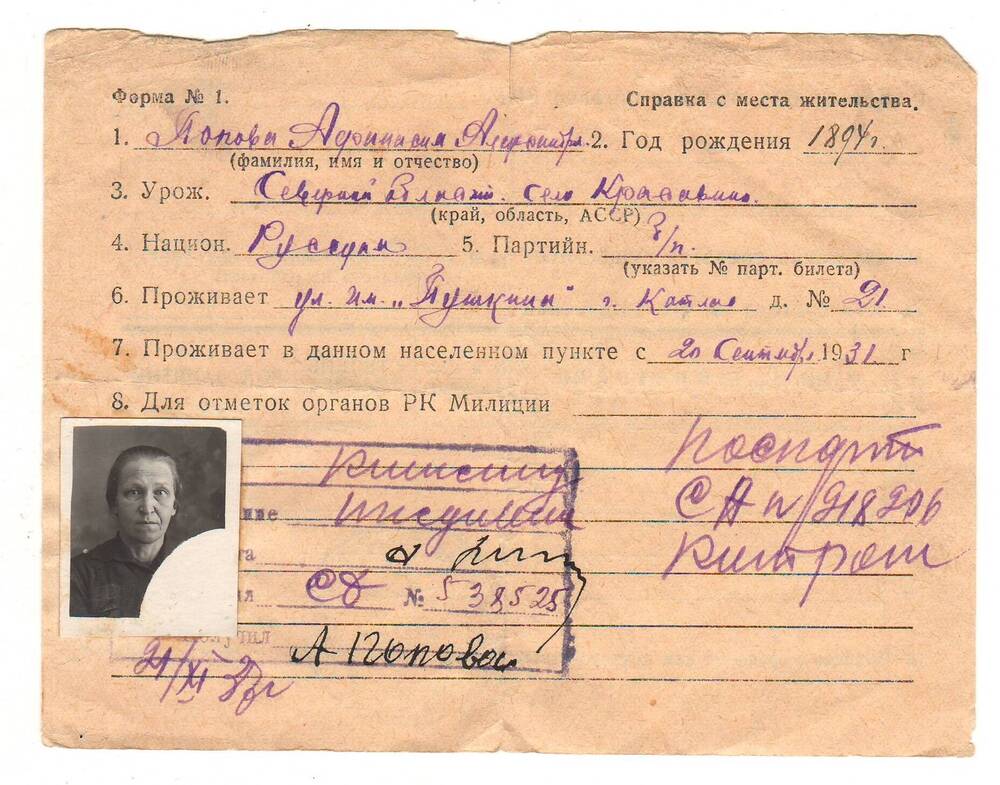 Форма № 1.
Справка с места жительства.
1. Попова Афанасия 2. Год рождения 1894 г.
(фамилия, имя и отчество)
3. Урож. село Красавино.
(край, область, АССР)
4. Национ. Русская 5. Партийн. б/п.
(указать № парт. билета)
6. Проживает ул. Им. „Пушкина" г. Котлас д. № 21.
7. Проживает в данном населенном пункте с 20 Сентября 1931 г
8. Для отметок органов РК Милиции
Паспорт
СА № 218206
СО № 538525
Получил А Попова
21/XI 37г